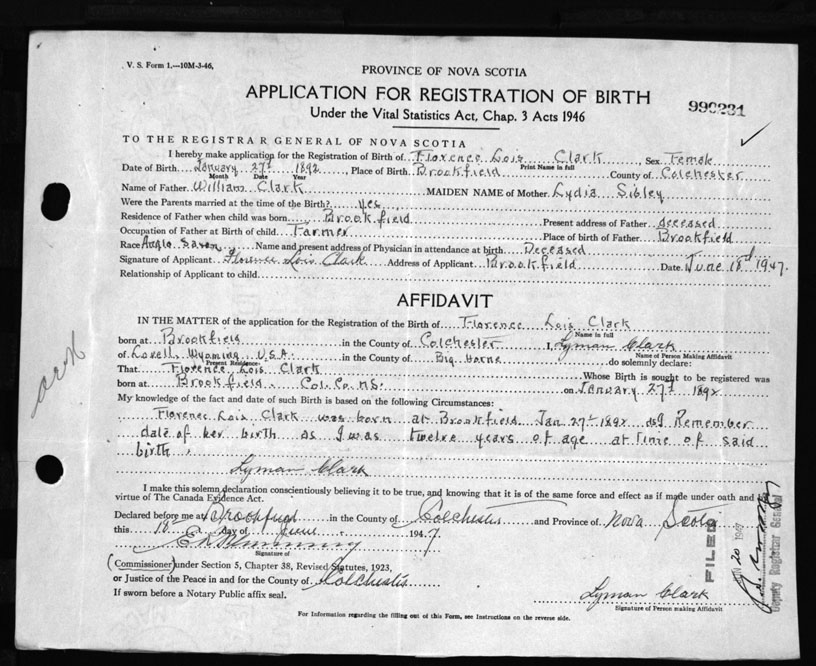 V. S. Form 1.—10M-3-46.
PROVINCE OF NOVA SCOTIA
APPLICATION FOR REGISTRATION OF BIRTH
990231
Under the Vital Statistics Act, Chap. 3 Acts 1946
TO THE REGISTRAR GENERAL OF NOVA SCOTIA
I hereby make application for the Registration of Birth of Florence Lois Clark, Sex Female
Print Name in full
Date of Birth January 27th 1892, Place of Birth Brookfield County of Colchester
Month Date Year
Name of Father William Clark MAIDEN NAME of Mother Lydia Sibley
Were the Parents married at the time of the Birth? Yes
Residence of Father when child was born Brookfield Present address of Father deceased
Occupation of Father at time of Birth Farmer Place of birth of Father Brookfield
Race Anglo Saxon, Name and present address of Physician in attendance at birth Deceased
Signature of Applicant Florence Lois Clark Address of Applicant Brookfield Date June 18 1947.
Relationship of Applicant to child
AFFIDAVIT
IN THE MATTER of the application for the Registration of the Birth of Florence Lois Clark
Name in full
born at Brookfield in the County of Colchester I, Lyman Clark
Name of Person Making Affidavit
of Lovell, Wyoming U.S.A. in the County of Big Horne do solemnly declare:
Present Residence
That Florence Lois Clark Whose Birth is sought to be registered was
born at Brookfield Col. Co. N.S. on January 27th 1892
My knowledge of the fact and date of such Birth is based on the following Circumstances:
Florence Lois Clark was born at Brookfield Jan 27th 1892 as I Remember
date of her birth as I was twelve years of age at time of said
birth.
Lyman Clark
I make this solemn declaration conscientiously believing it to be true, and knowing that it is of the same force and effect as if made under oath and by
virtue of The Canada Evidence Act.
Declared before me at Brookfield in the County of Colchester and Province of Nova Scotia
this 18 day of June 1947
Signature of
(Commissioner) under Section 5, Chapter 38, Revised Statutes, 1923,
or Justice of the Peace in and for the County of Colchester
If sworn before a Notary Public affix seal.
Lyman Clark
Signature of Person making Affidavit
For Information regarding the filling out of this Form, see Instructions on the reverse side.
FILED
20 1947
Deputy Registrar General